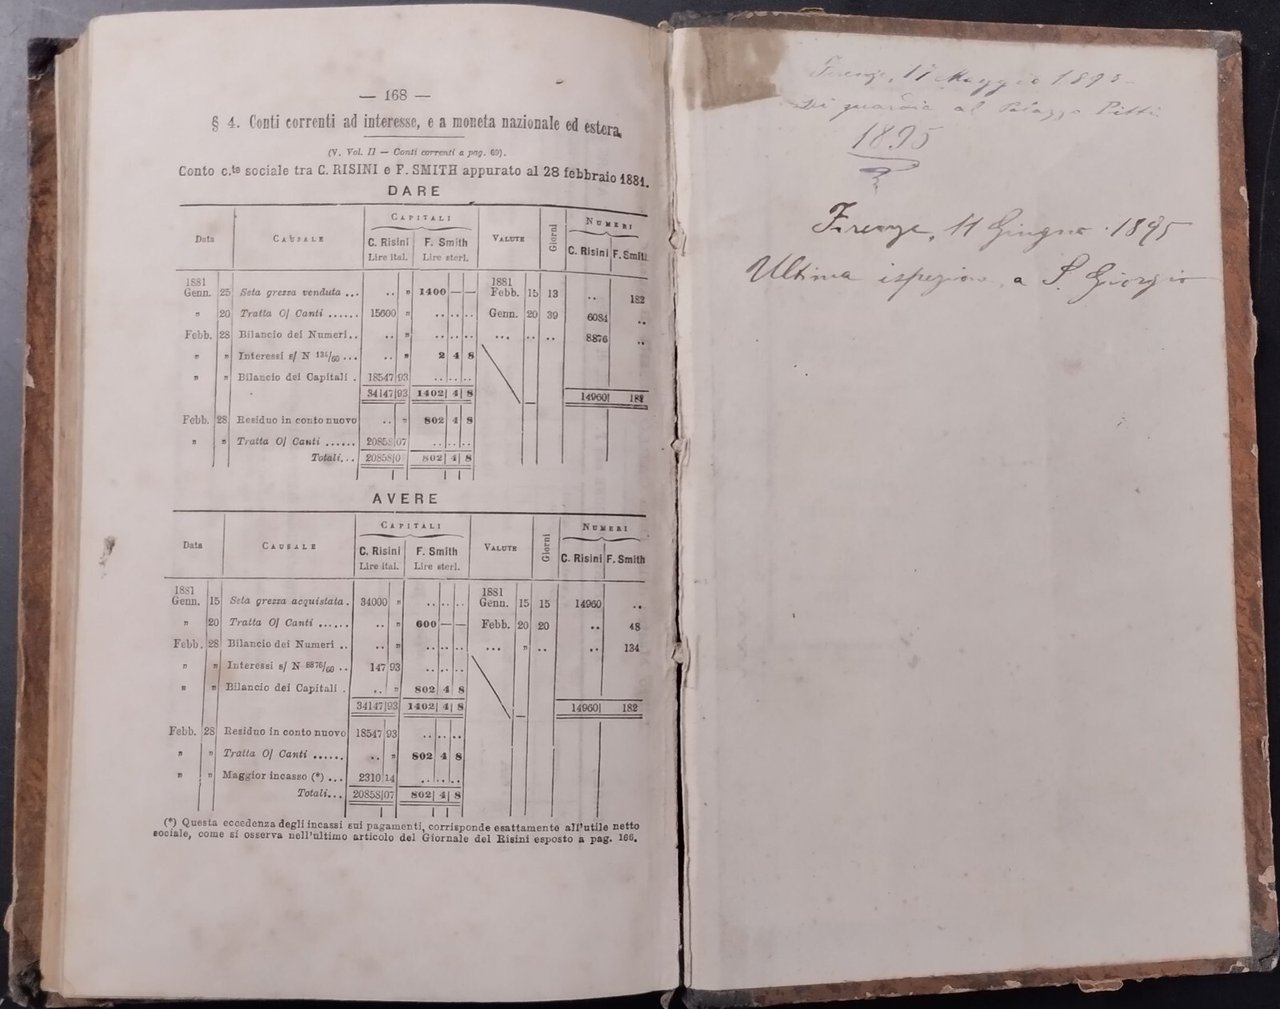 — 168 —
§ 4. Conti correnti ad interesse, e a moneta nazionale ed estera.
(V. Vol. II — Conti correnti a pag. 69).
Conto c.te sociale tra C. RISINI e F. SMITH appurato al 28 febbraio 1881.
DARE
Data CAUSALE CAPITALI VALUTE Giorni NUMERI
C. Risini F. Smith C. Risini F. Smith
Lire ital. Lire sterl.
1881 1881
Genn. 25 Seta grezza venduta ... .. » 1400 — — Febb. 15 13 .. 182
» 20 Tratta O/ Canti ...... 15600 » .. .. .. Genn. 20 39 6084 ..
Febb. 28 Bilancio dei Numeri.. .. » .. .. .. ... .. .. 8876 ..
» » Interessi s/ N 134/60 ... .. » 2 4 8
» » Bilancio dei Capitali . 18547 93 .. .. ..
34147 93 1402 4 8 14960 182
Febb. 28 Residuo in conto nuovo .. » 802 4 8
» » Tratta O/ Canti ...... 20858 07 .. .. ..
Totali... 20858 0 802 4 8
AVERE
Data CAUSALE CAPITALI VALUTE Giorni NUMERI
C. Risini F. Smith C. Risini F. Smith
Lire ital. Lire sterl.
1881 1881
Genn. 15 Seta grezza acquistata . 34000 » .. .. .. Genn. 15 15 14960 ..
» 20 Tratta O/ Canti ...... .. » 600 — — Febb. 20 20 .. 48
Febb. 28 Bilancio dei Numeri .. .. » .. .. .. ... » .. .. 134
» » Interessi s/ N 8876/60 .. 147 93 .. .. ..
» » Bilancio dei Capitali . .. » 802 4 8
34147 93 1402 4 8 14960 182
Febb. 28 Residuo in conto nuovo 18547 93 .. .. ..
» » Tratta O/ Canti ...... .. » 802 4 8
» » Maggior incasso (*) ... 2310 14 .. .. ..
Totali... 20858 07 802 4 8
(*) Questa eccedenza degli incassi sui pagamenti, corrisponde esattamente all'utile netto
sociale, come si osserva nell'ultimo articolo del Giornale del Risini esposto a pag. 166.
Firenze, 17 Maggio 1895
Di guardia al Palazzo Pitti
1895
Firenze, 11 Giugno 1895
Ultima ispezione a S. Giorgio